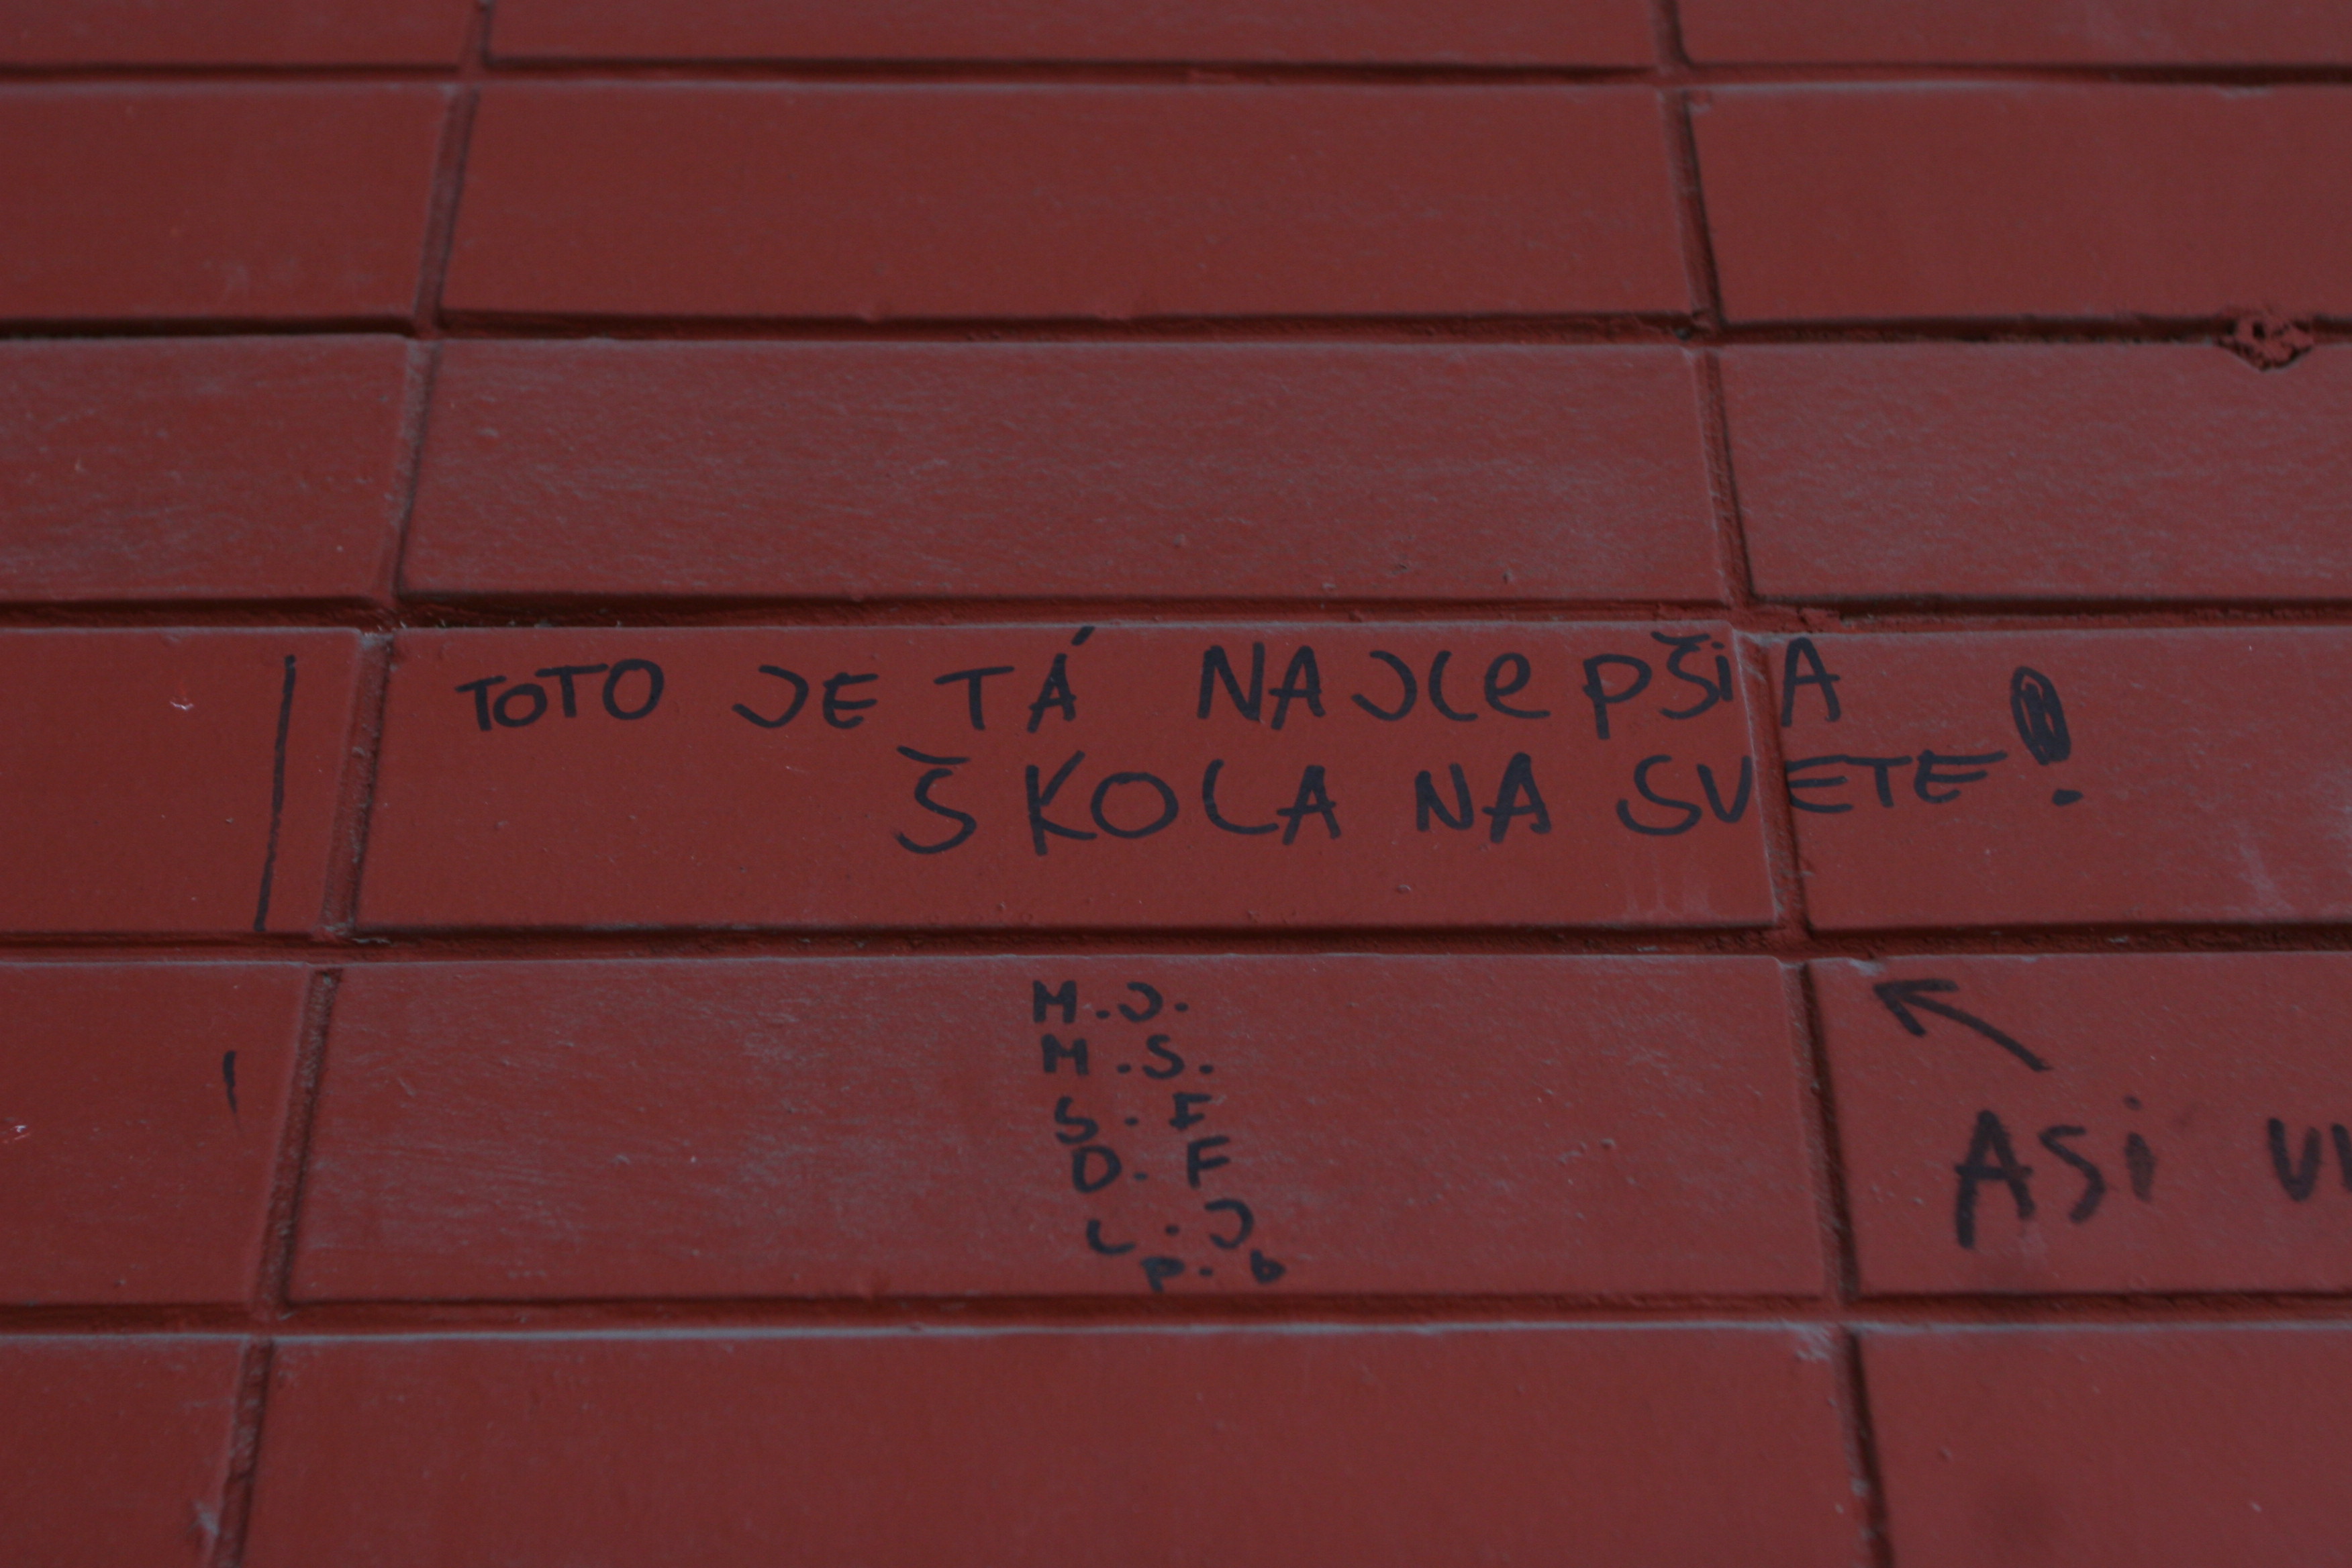 TOTO JE TÁ NAJLePŠiA
ŠKOLA NA SVETE!
M.J.
M.S.
S.F
D.F
L.J
p.b
ASi